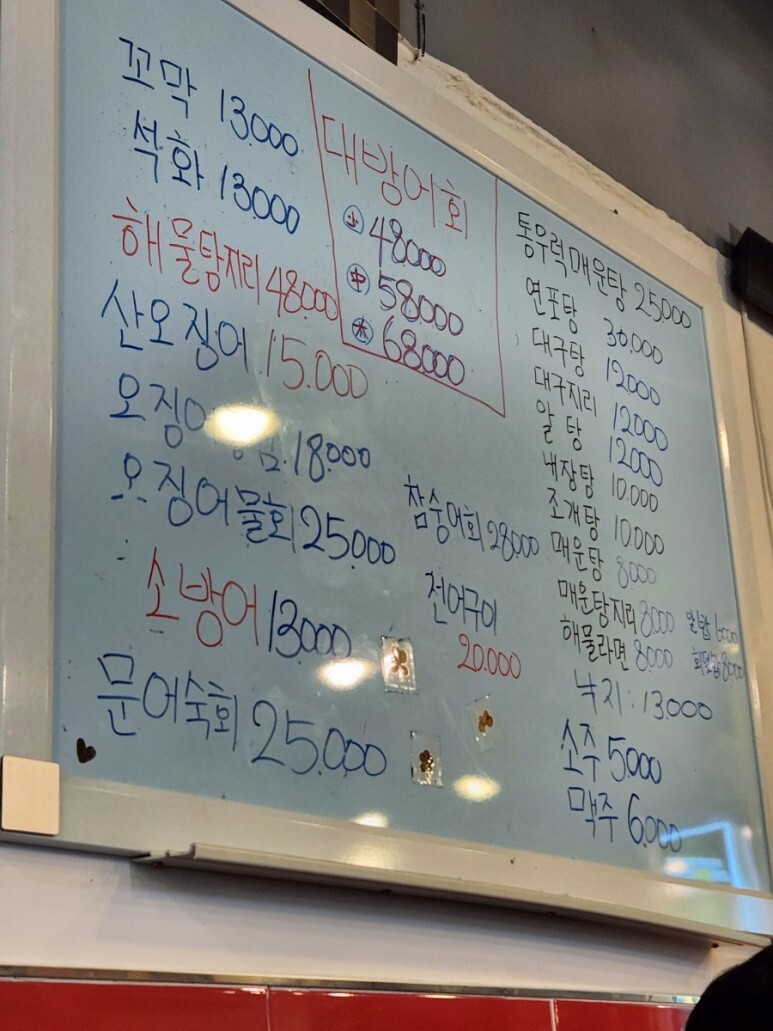 꼬막 13.000
석화 13000
해물탕지리 48000
산오징어 15.000
오징어 18.000
오징어물회 25.000
소방어 13000
문어숙회 25.000
대방어회
小 48.000
中 58000
大 68.000
참숭어회 28000
전어구이
20.000
통우럭매운탕 25.000
연포탕 30.000
대구탕 12000
대구지리 12000
알탕 12000
내장탕 10.000
조개탕 10000
매운탕 8000
매운탕지리 8000
해물라면 8000
낙지 : 13.000
소주 5.000
맥주 6.000